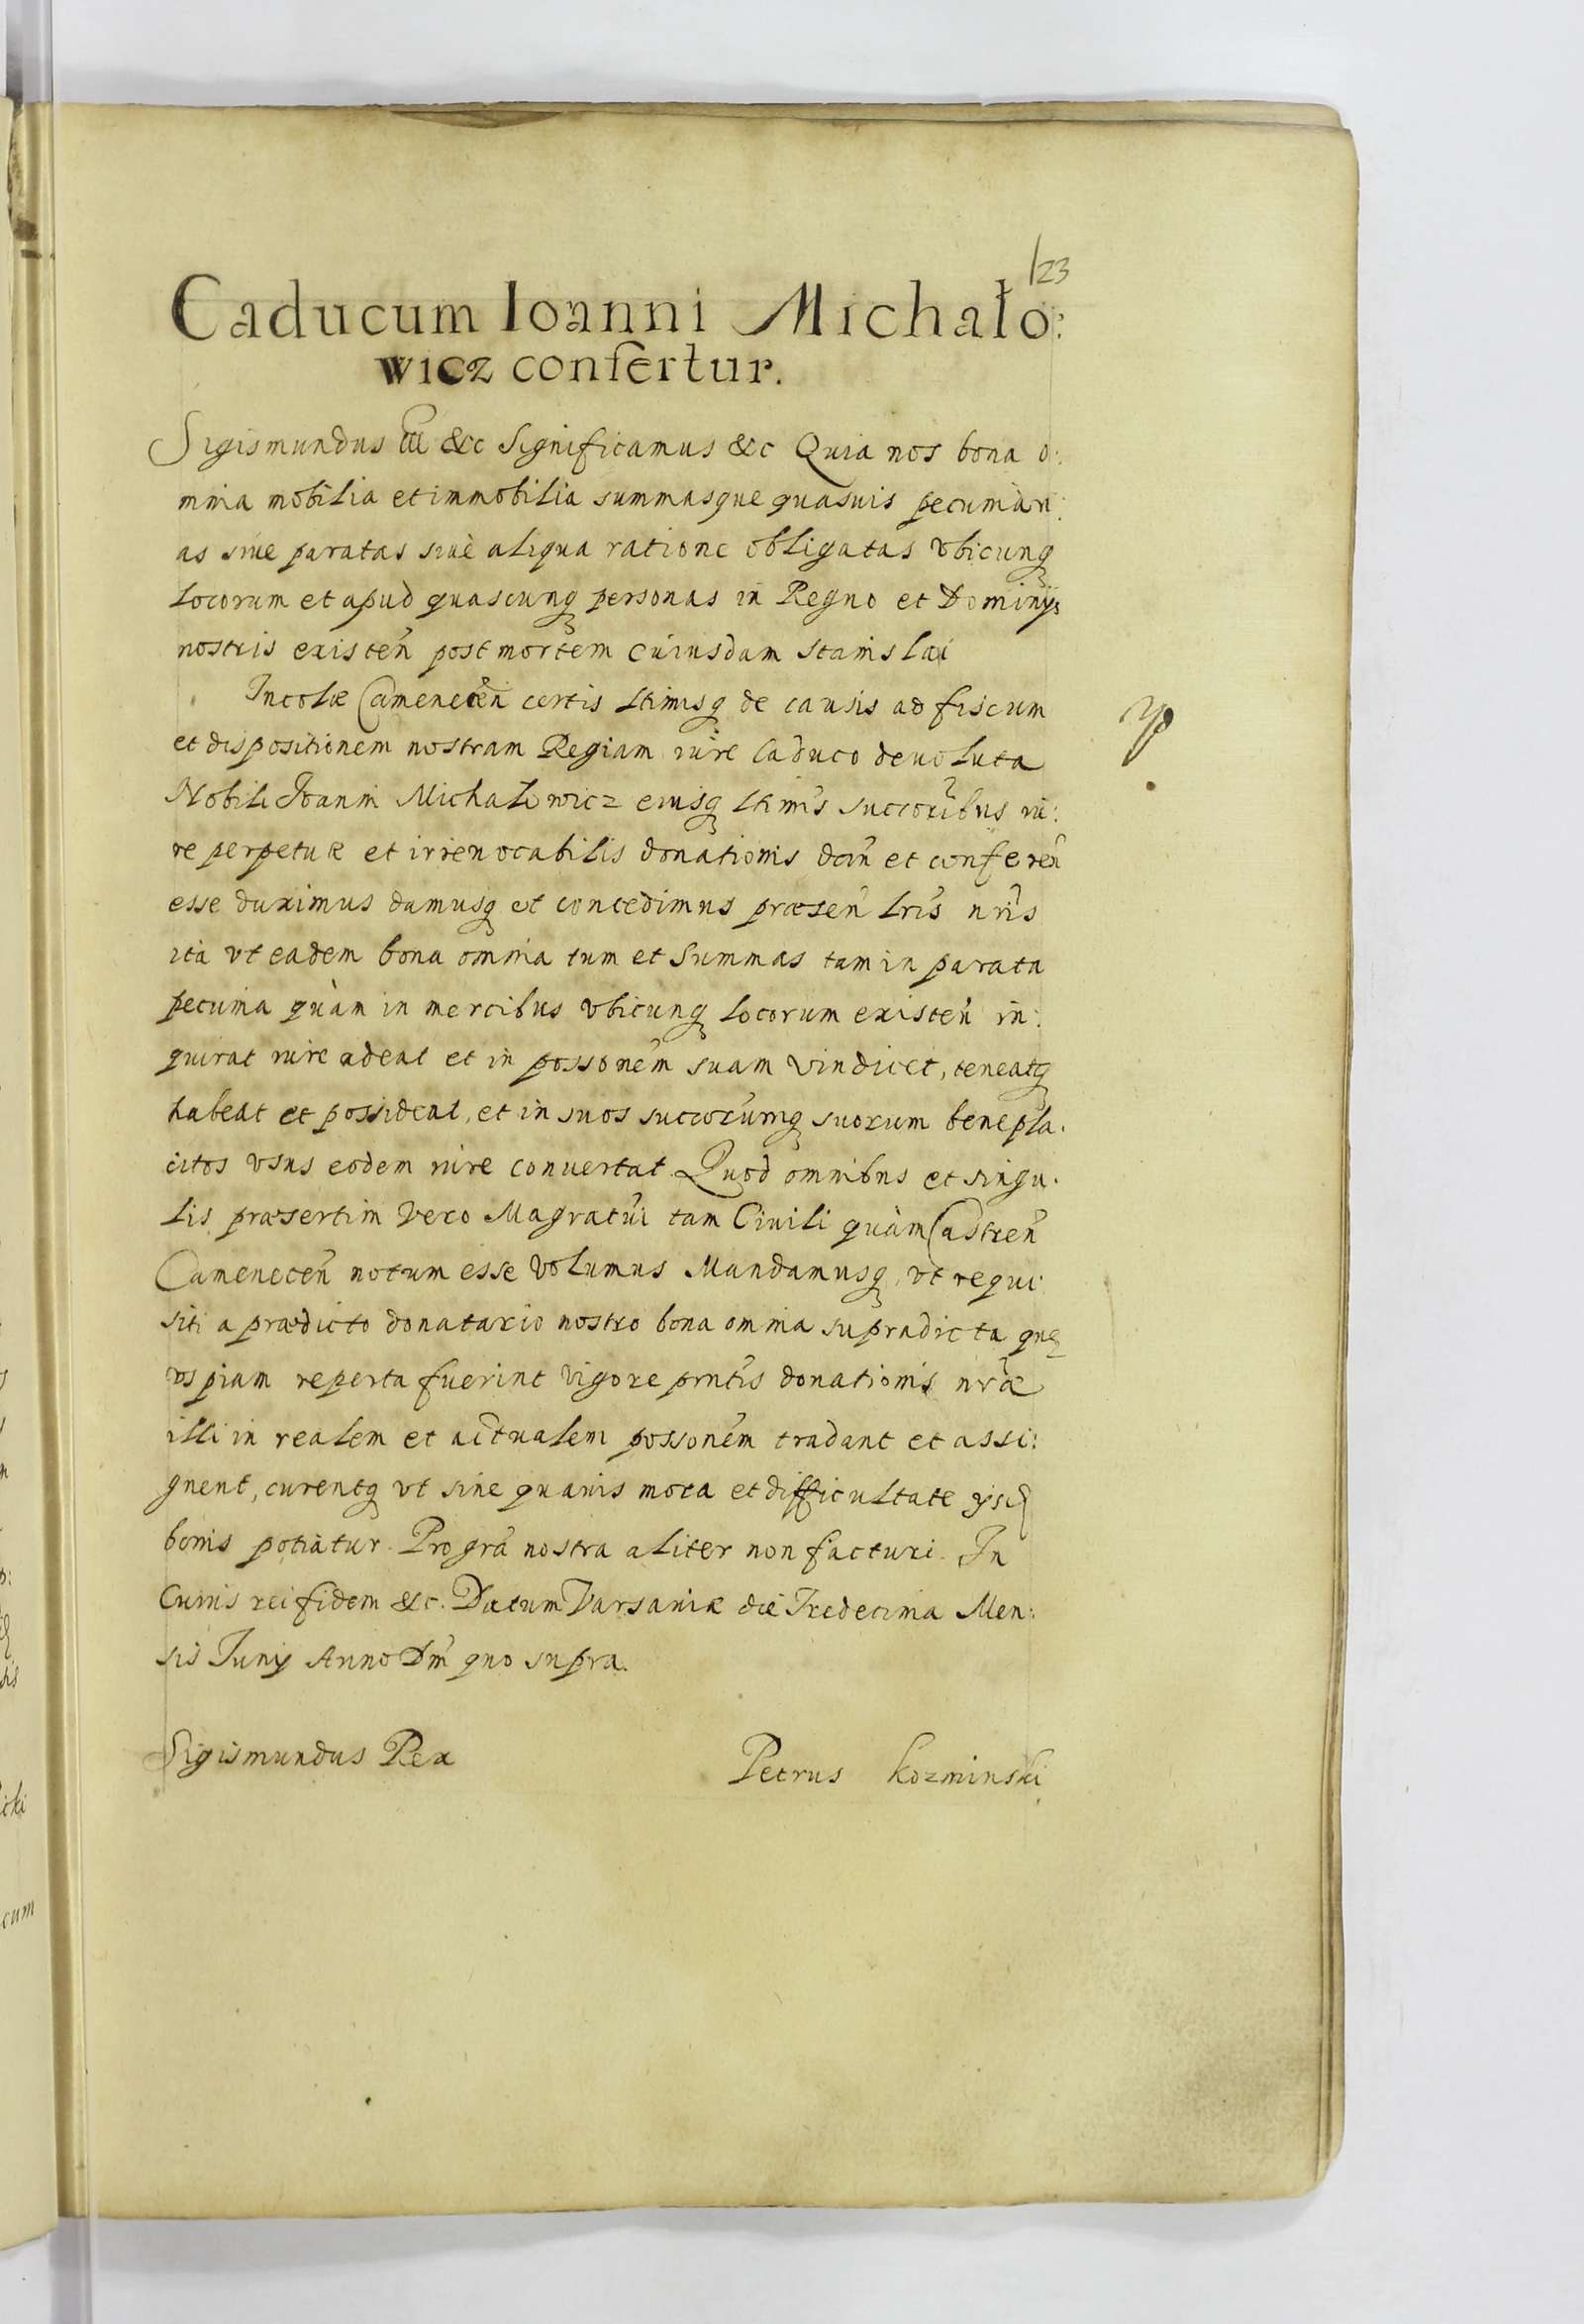 123
Caducum Ioanni Michało:
wicz confertur.
Sigismundus III &c Significamus &c Quia nos bona o:
mnia mobilia et immobilia summasque quasuis pecuniari:
as siue paratas siuè aliqua ratione obligatas vbicunq
locorum et apud quascunq personas in Regno et Dominÿs
nostris existen̄ post mortem cuiusdam Stanislai
Incolæ Camenecen̄ certis ltimisq de causis ad fiscum
et dispositionem nostram Regiam iure Caduco deuoluta
Nobili Ioanni Michałowicz eiusq ltimis succoribus iu:
re perpetuæ et irreuocabilis donationis dan̄ et conferen̄
esse duximus damusq et concedimus præsen̄ lris nris
ità vt eadem bona omnia tum et summas tam in parata
pecunia quàm in mercibus vbicunq locorum existen̄ in:
quirat iure adeat et in possonem suam vindicet, teneatq
habeat et possideat, et in suos succorumq suorum benepla:
citos vsus eodem iure conuertat. Quod omnibus et singu:
lis præsertim vero Magratui tam Ciuili quàm Castren̄
Camenecen̄ notum esse volumus Mandamusq, vt requi:
siti a prædicto donatario nostro bona omnia supradicta quę
vspiam reperta fuerint vigore prntis donationis nræ
illi in realem et actualem possonem tradant et assi:
gnent, curentq vt sine quauis mora et difficultate ÿsd
bonis potiatur. Pro gra nostra aliter non facturi. In
Cuius rei fidem &c. Datum Varsauiæ die Tredecima Men:
sis Iunÿ Anno Dm̄ quo supra.
Sigismundus Rex
Petrus Kozminski